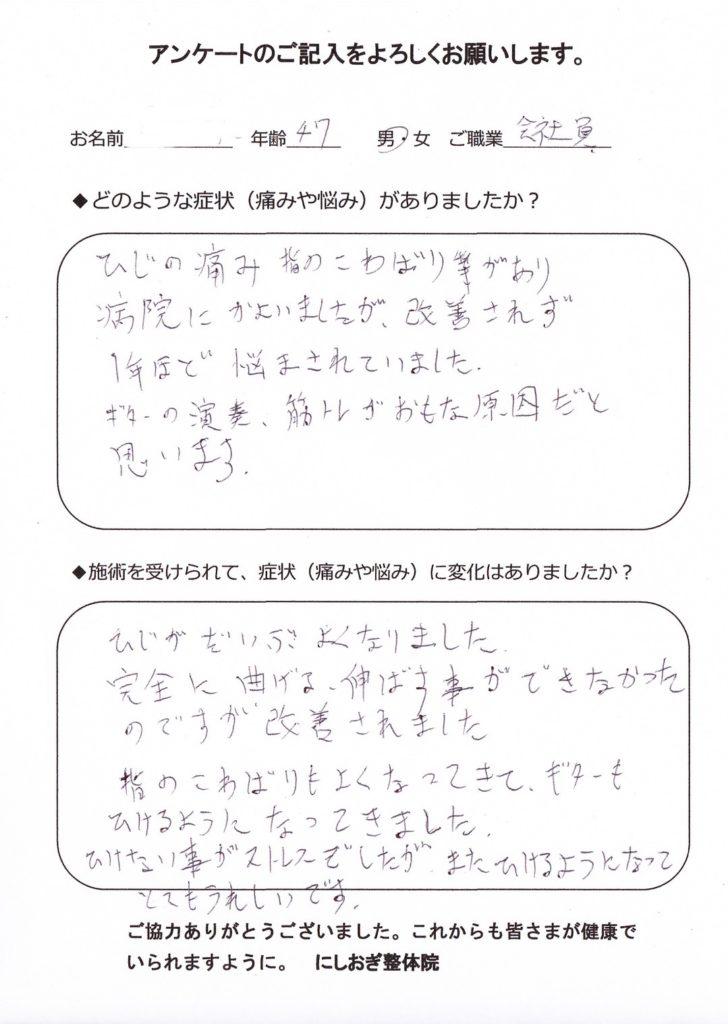 アンケートのご記入をよろしくお願いします。
お名前 年齢 47 男・女 ご職業 会社員
◆どのような症状（痛みや悩み）がありましたか？
ひじの痛み 指のこわばり等があり
病院にかよいましたが、改善されず
1年ほど悩まされていました。
ギターの演奏、筋トレがおもな原因だと
思います。
◆施術を受けられて、症状（痛みや悩み）に変化はありましたか？
ひじがだいぶよくなりました。
完全に曲げる、伸ばす事ができなかった
のですが改善されました
指のこわばりもよくなってきて、ギターも
ひけるようになってきました。
ひけない事がストレスでしたが、またひけるようになって
とてもうれしいです。
ご協力ありがとうございました。これからも皆さまが健康で
いられますように。 にしおぎ整体院